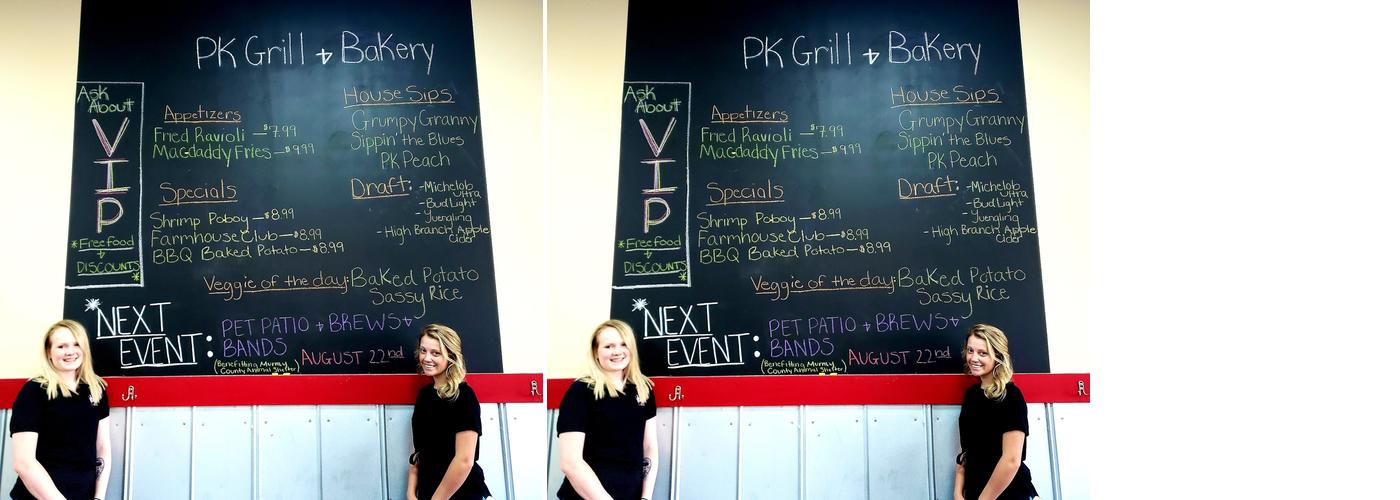 PK Grill + Bakery
Ask
About
VIP
*Free food
+
DISCOUNTS
*
Appetizers
Fried Ravioli — $7.99
Macdaddy Fries — $9.99
Specials
Shrimp Poboy — $8.99
Farmhouse Club — $8.99
BBQ Baked Potato — $8.99
House Sips
Grumpy Granny
Sippin' the Blues
PK Peach
Draft: - Michelob
Ultra
- Bud Light
- Yuengling
- High Branch Apple
Cider
Veggie of the day: Baked Potato
Sassy Rice
*NEXT
EVENT:
PET PATIO + BREWS +
BANDS
(Benefitting Murray
County Animal Shelter)
AUGUST 22nd
PK Grill + Bakery
Ask
About
VIP
*Free food
+
DISCOUNTS
*
Appetizers
Fried Ravioli — $7.99
Macdaddy Fries — $9.99
Specials
Shrimp Poboy — $8.99
Farmhouse Club — $8.99
BBQ Baked Potato — $8.99
House Sips
Grumpy Granny
Sippin' the Blues
PK Peach
Draft: - Michelob
Ultra
- Bud Light
- Yuengling
- High Branch Apple
Cider
Veggie of the day: Baked Potato
Sassy Rice
*NEXT
EVENT:
PET PATIO + BREWS +
BANDS
(Benefitting Murray
County Animal Shelter)
AUGUST 22nd